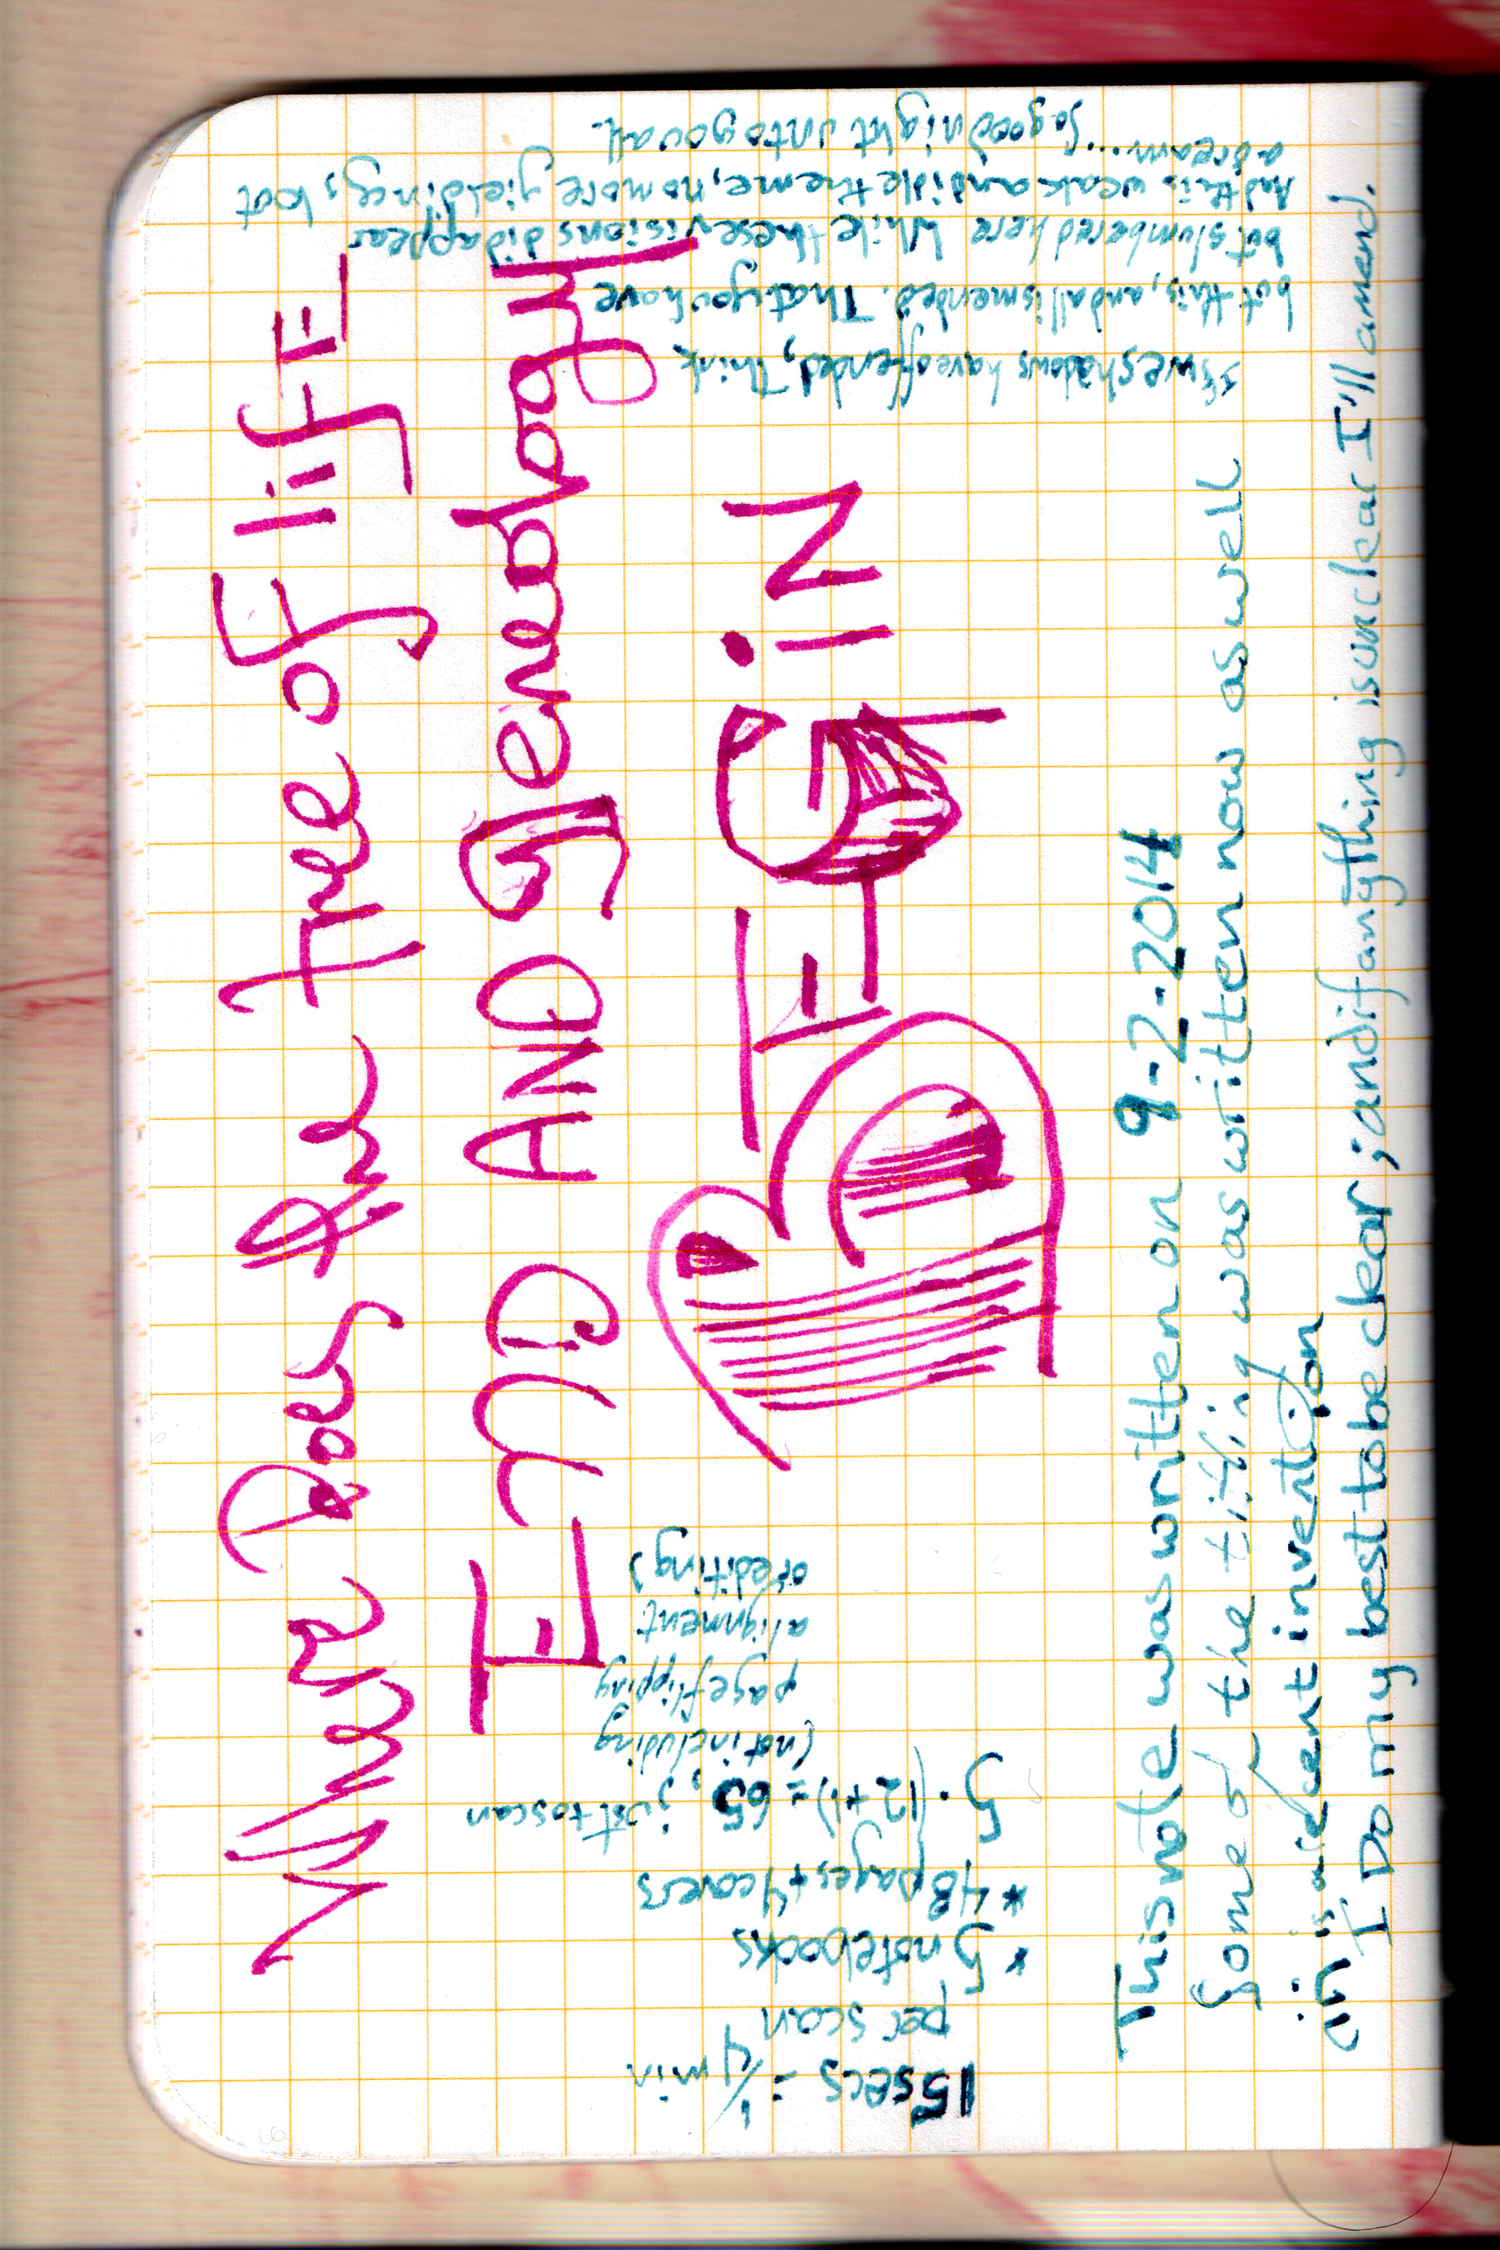 Where Does the Tree of lifE
End AND genealogy
BEGiN
15secs = 1/4 min
per scan
* 5 notebooks
* 48 pages + 4 covers
5·(12+1) = 65, just to scan
(not including
page flipping
alignment
or editing)
If we shadows have offended, Think
but this, and all is mended. That you have
but slumbered here While these visions did appear
And this weak and idle theme, no more yielding, but
a dream...
So good night unto you all.
This note was written on 9-2-2014
Some of the titling was written now as well
recent invention
I Do my best to be clear; and if anything is unclear I'll amend.